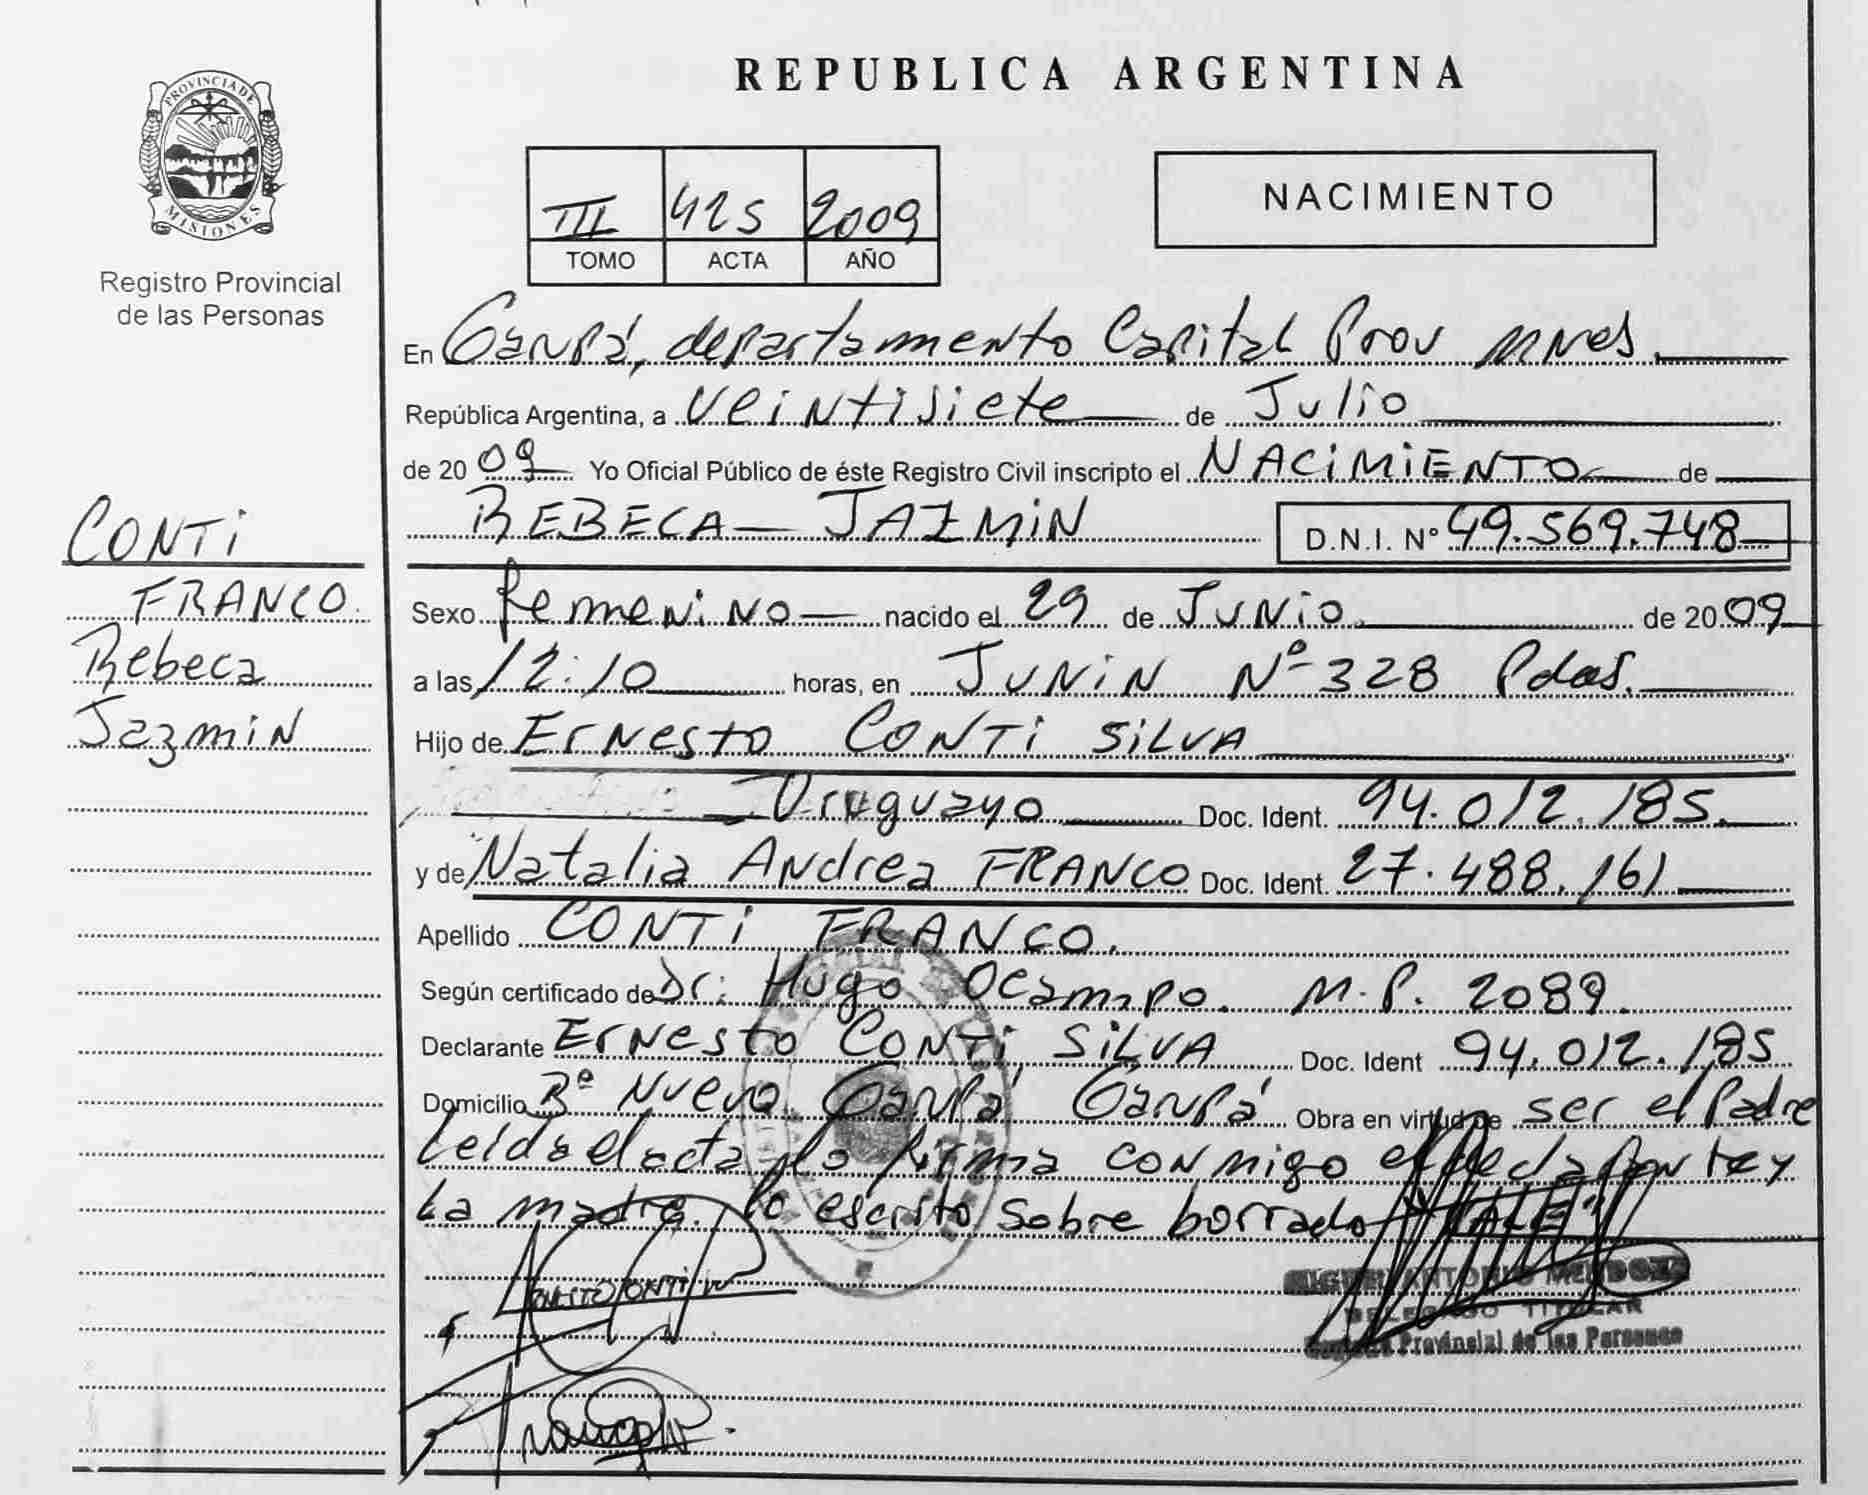 REPUBLICA ARGENTINA
PROVINCIA DE
MISIONES
Registro Provincial
de las Personas
III 425 2009
TOMO ACTA AÑO
NACIMIENTO
En Garupá, departamento Capital Prov Mnes.
República Argentina, a veintisiete de Julio
de 2009 Yo Oficial Público de éste Registro Civil inscripto el NACIMIENTO de
REBECA JAZMIN D.N.I. Nº 49.569.748
CONTI
FRANCO.
Rebeca
Jazmin
Sexo femenino nacido el 29 de JUNIO. de 2009
a las 12:10 horas, en JUNIN Nº 328 Pdas.
Hijo de Ernesto CONTI SILVA
Uruguayo Doc. Ident. 94.012.185.
y de Natalia Andrea FRANCO Doc. Ident. 27.488.161
Apellido CONTI FRANCO.
Según certificado de Dr: Hugo Ocampo. M.P. 2089.
Declarante Ernesto CONTI SILVA Doc. Ident 94.012.185
Domicilio Bº Nuevo Garupá Garupá Obra en virtud de ser el Padre
Leída el acta lo firma conmigo el declarante y
La madre. lo escrito sobre borrado "VALE"
ERNESTO CONTI
MIGUEL ANTONIO MENDOZA
DELEGADO TITULAR
Registro Provincial de las Personas
Franco N.